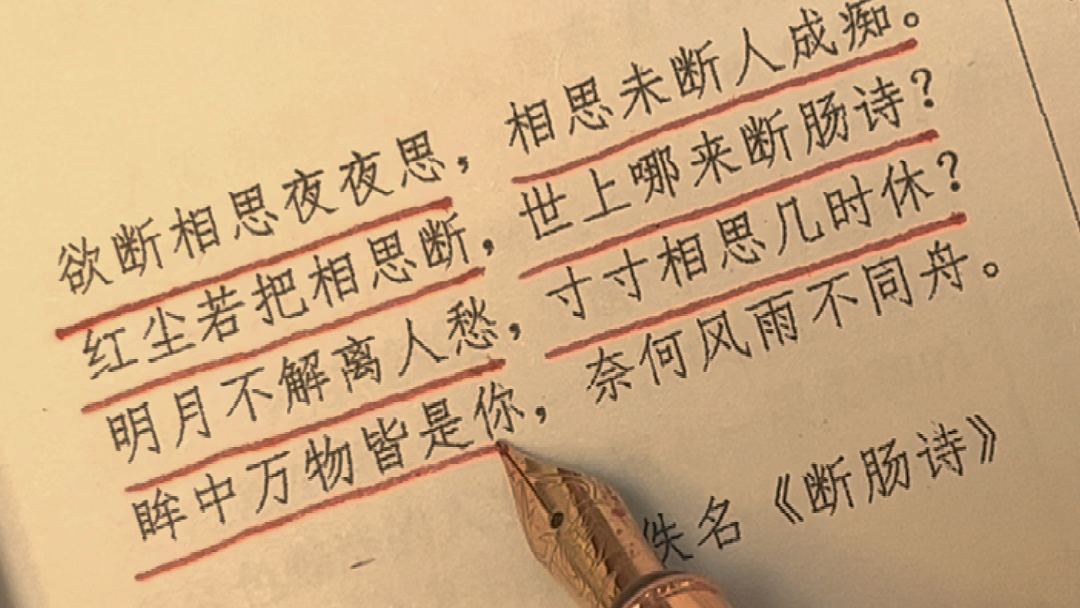 欲断相思夜夜思，相思未断人成痴。
红尘若把相思断，世上哪来断肠诗？
明月不解离人愁，寸寸相思几时休？
眸中万物皆是你，奈何风雨不同舟。
佚名《断肠诗》